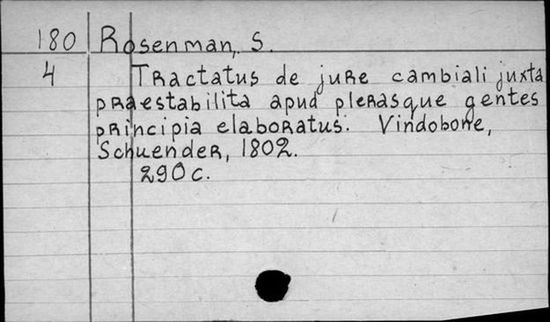 180 Rosenman, S.
4 Tractatus de jure cambiali juxta
praestabilita apud plerasque gentes
principia elaboratus. Vindobone,
Schuender, 1802.
290 c.